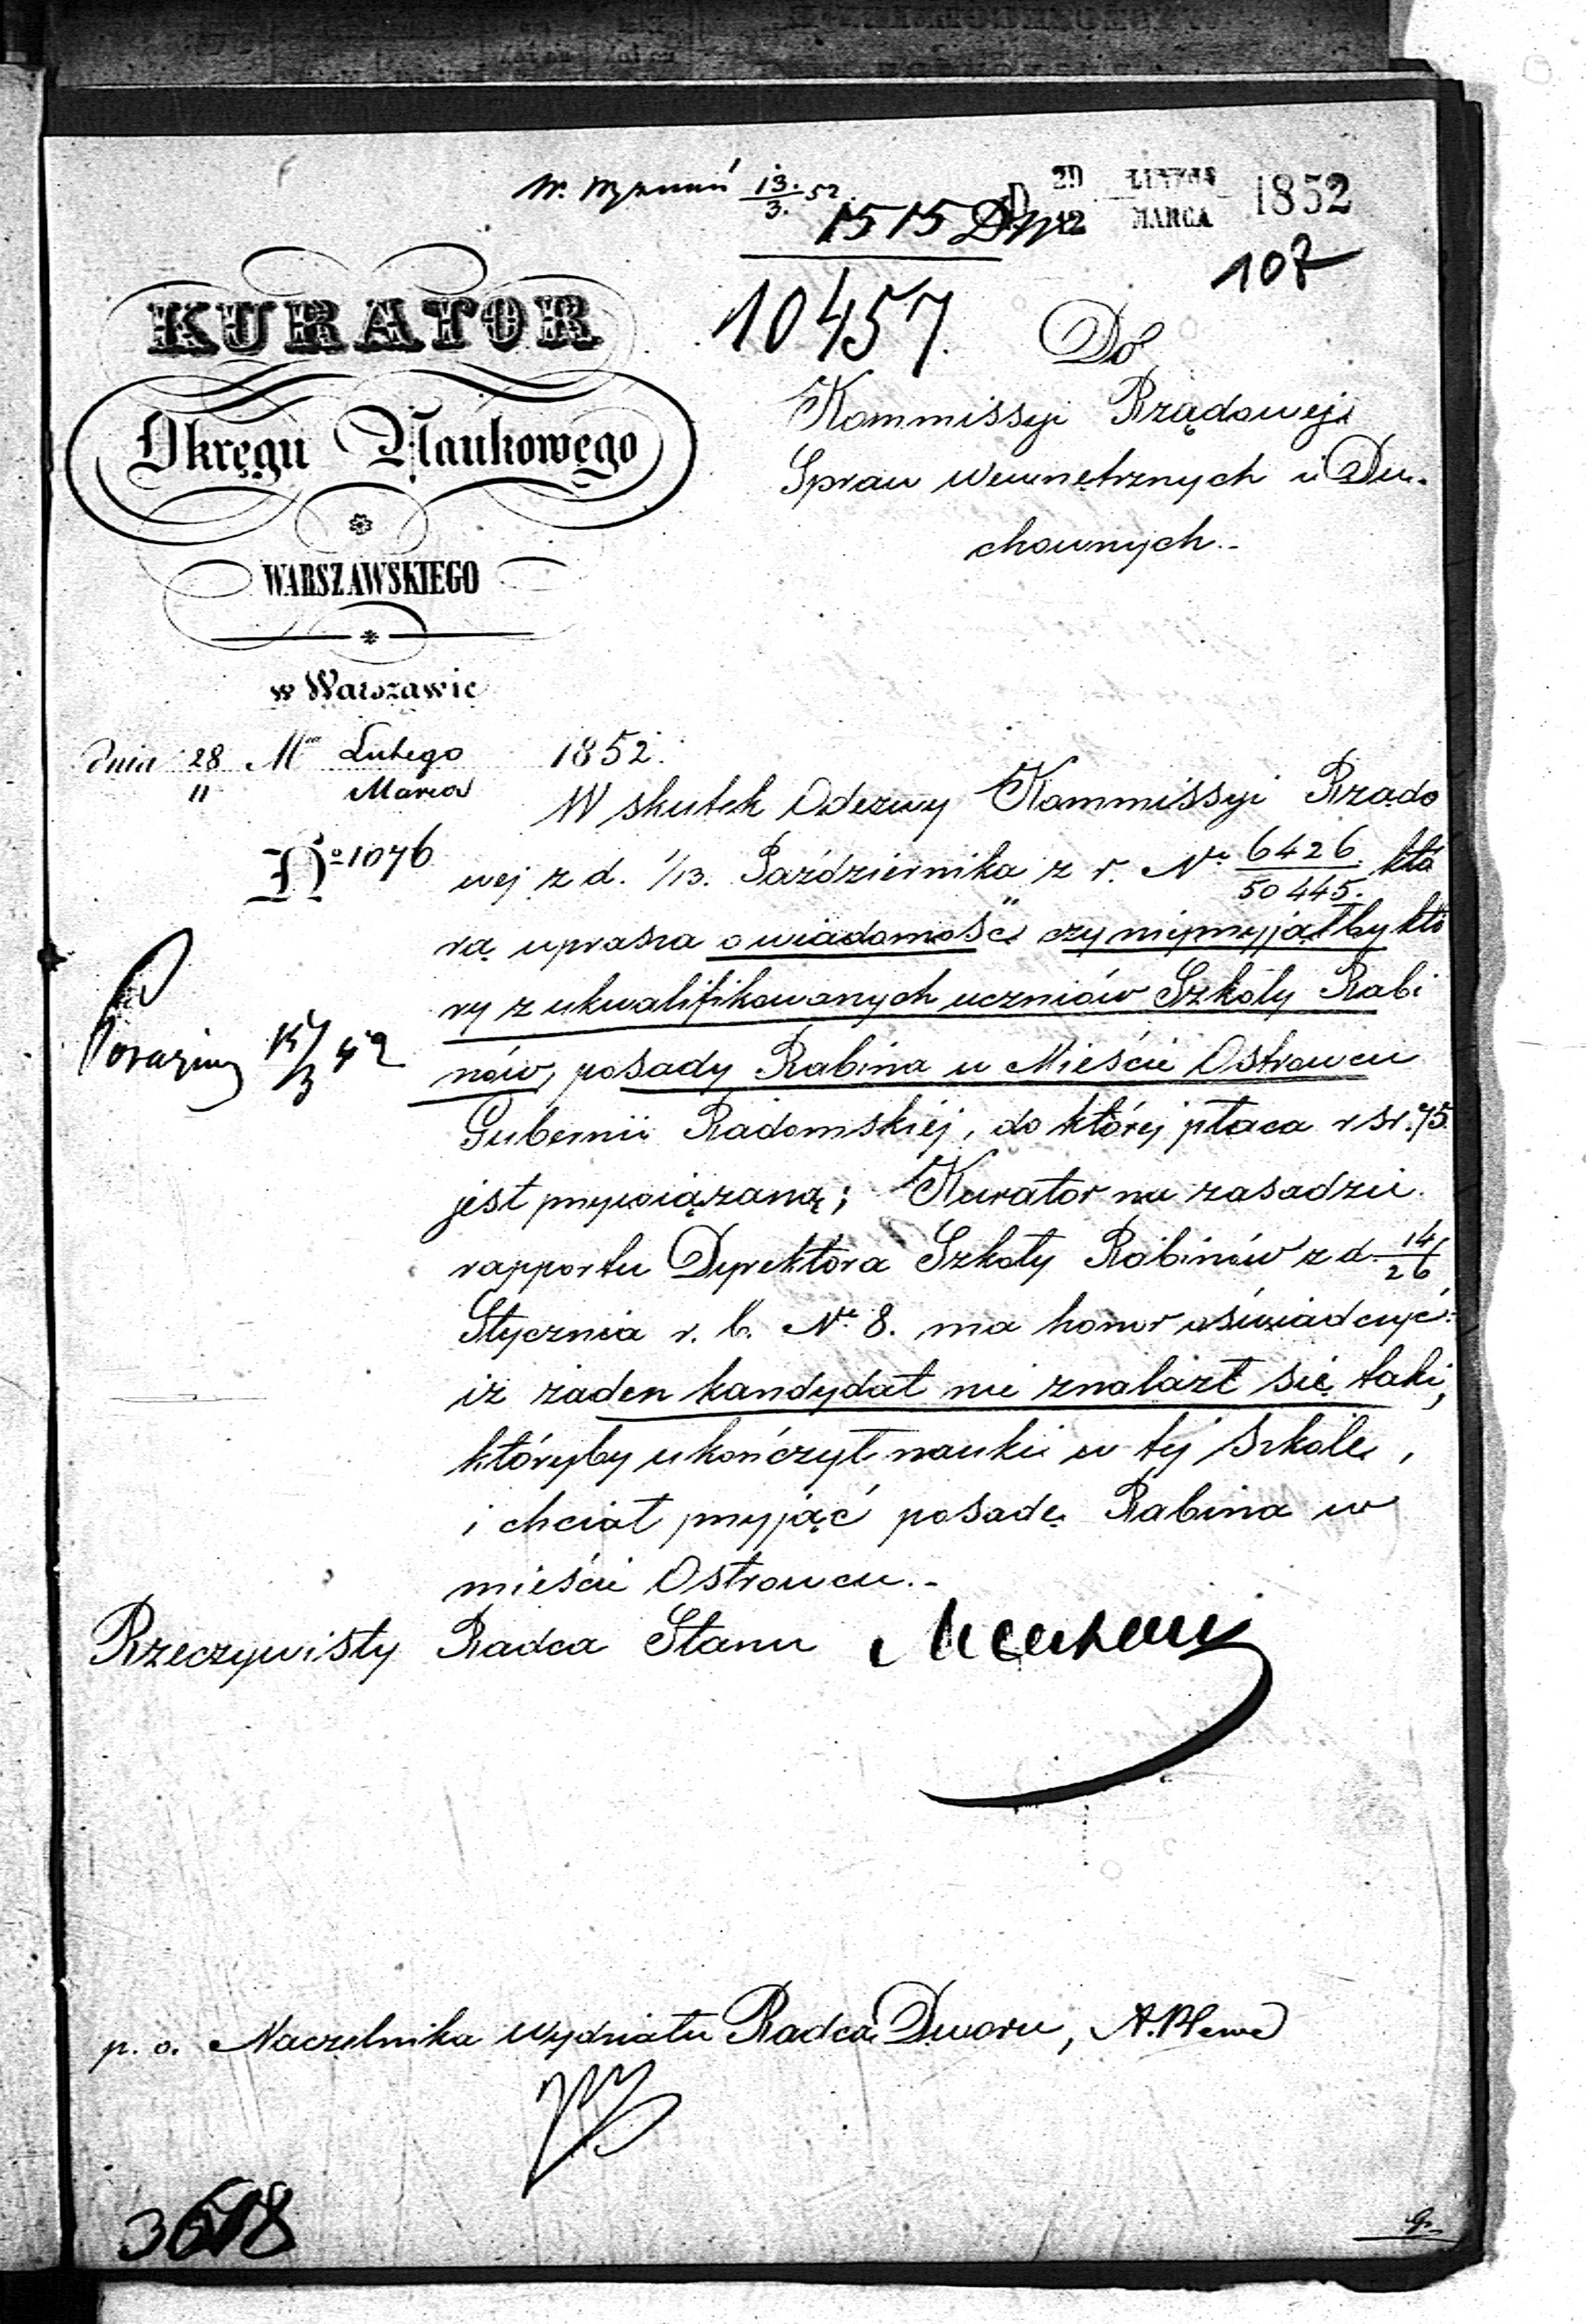 13./3. 52.
1515
29/12 LUTEGO/MARCA 1852
107
10457.
KURATOR
Okręgu Naukowego
WARSZAWSKIEGO
w Warszawie
Do
Kommissyi Rządowej
Spraw Wewnętrznych i Du-
chownych.-
dnia 28/11 Mca Lutego/Marca 1852.
No 1076
W skutek Odezwy Kommissyi Rządo
wej z d. 1/13. Października z r. Nr 6426/50445. któ
rą uprasza o wiadomość czy nieprzyjąłby któ
ry z ukwalifikowanych uczniów Szkoły Rabi
nów, posady Rabina w Mieście Ostrowcu
Gubernii Radomskiéj, do któréj płaca rsr. 75.
jest przywiązaną; Kurator na zasadzie
rapportu Dyrektora Szkoły Rabinów z d. 14/26
Stycznia r. b. Nr 8. ma honor oświadczyć
iż żaden kandydat nie znalazł się taki,
któryby ukończył nauki w téj Szkole,
i chciał przyjąć posadę Rabina w
mieście Ostrowcu.-
Rzeczywisty Radca Stanu
p. o. Naczelnika Wydziału Radca Dworu, A. Plewe